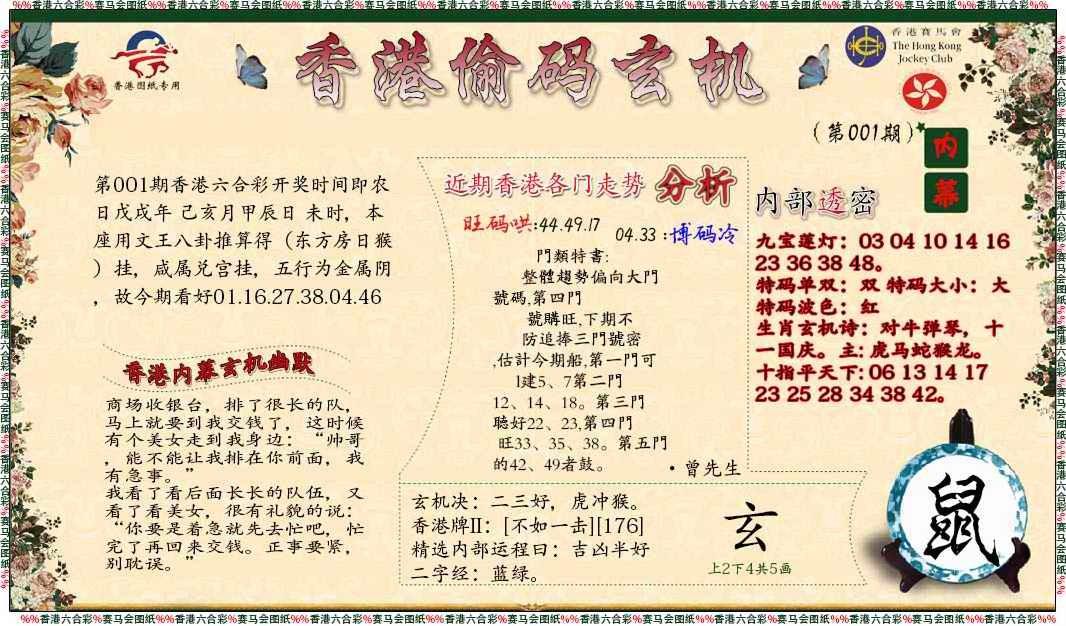 %%香港六合彩%赛马会图纸%%香港六合彩%赛马会图纸%%香港六合彩%赛马会图纸%%香港六合彩%赛马会图纸%%香港六合彩%赛马会图纸%%香港六合彩%赛马会图纸%%香港六合彩%%
香港图纸专用
香港偷码玄机
香港賽馬會
The Hong Kong
Jockey Club
(第001期)
内幕
第001期香港六合彩开奖时间即农
日戊戌年 己亥月甲辰日 未时，本
座用文王八卦推算得（东方房日猴
）挂，咸属兑宫挂，五行为金属阴
，故今期看好01.16.27.38.04.46
香港内幕玄机幽默
商场收银台，排了很长的队，
马上就要到我交钱了，这时候
有个美女走到我身边：“帅哥
，能不能让我排在你前面，我
有急事。”
我看了看后面长长的队伍，又
看了看美女，很有礼貌的说：
“你要是着急就先去忙吧，忙
完了再回来交钱。正事要紧，
别耽误。”
近期香港各门走势 分析
旺码哄:44.49.17
04.33 :博码冷
門類特書:
整體趨勢偏向大門
號碼,第四門
號購旺,下期不
防追捧三門號密
,估計今期船,第一門可
l建5、7第二門
12、14、18。第三門
聽好22、23,第四門
旺33、35、38。第五門
的42、49者鼓。
•曾先生
内部透密
九宝莲灯：03 04 10 14 16
23 36 38 48。
特码单双：双 特码大小：大
特码波色：红
生肖玄机诗：对牛弹琴，十
一国庆。主: 虎马蛇猴龙。
十指平天下: 06 13 14 17
23 25 28 34 38 42。
玄机决：二三好，虎冲猴。
香港牌II：[不如一击][176]
精选内部运程曰：吉凶半好
二字经：蓝绿。
玄
上2下4共5画
鼠
%%香港六合彩%赛马会图纸%%香港六合彩%赛马会图纸%%香港六合彩%赛马会图纸%%香港六合彩%赛马会图纸%%香港六合彩%赛马会图纸%%香港六合彩%赛马会图纸%%香港六合彩%%